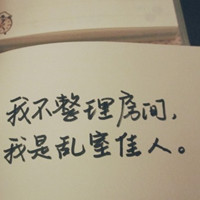 我不整理房间，
我是乱室佳人。